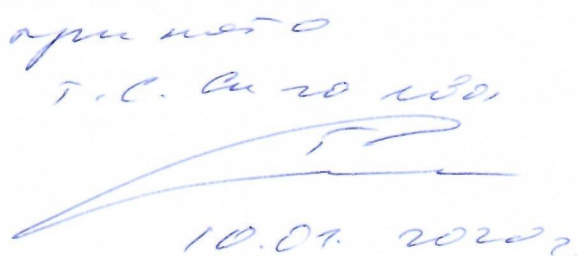 принято
Т.С. Сиголова
10.01. 2020г.